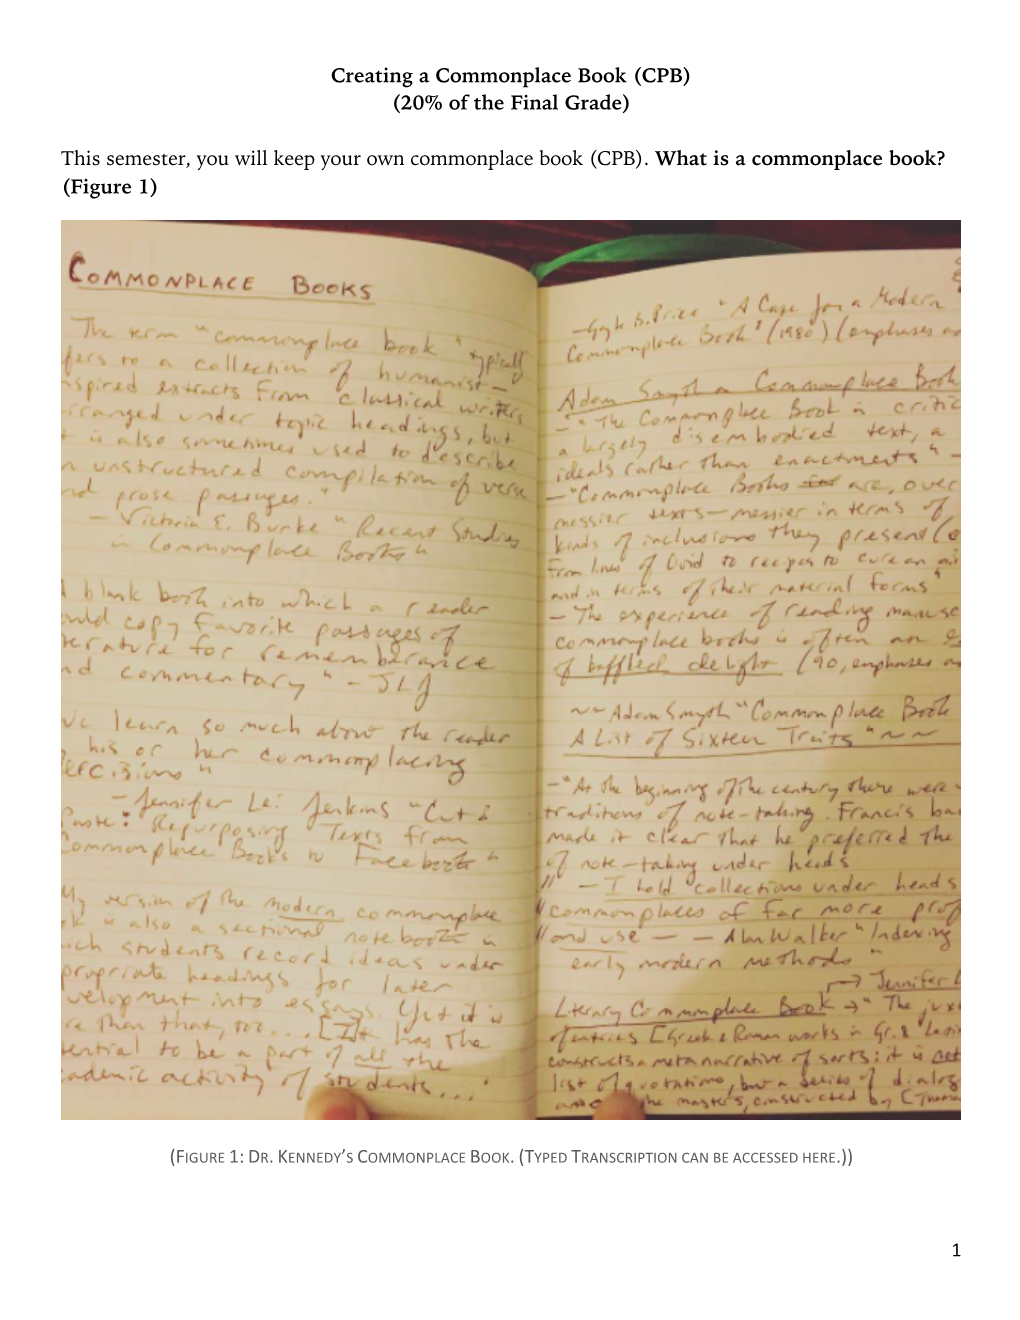 Creating a Commonplace Book (CPB)
(20% of the Final Grade)
This semester, you will keep your own commonplace book (CPB). What is a commonplace book?
(Figure 1)
COMMONPLACE BOOKS
The term "commonplace book" typically
fers to a collection of humanist-
nspired extracts from classical writers
rranged under topic headings, but
t is also sometimes used to describe
n unstructured compilation of verse
nd prose passages."
– Victoria E. Burke "Recent Studies
in Commonplace Books"
blank book into which a reader
uld copy favorite passages of
terature for rememberance
nd commentary" - JLJ
ve learn so much about the reader
his or her commonplacing
ercisions"
– Jennifer Lei Jenkins "Cut &
Paste: Repurposing Texts from
Commonplace Books to Facebook"
My version of the modern commonplace
ok is also a sectional notebook in
ich students record ideas under
propriate headings for later
velopment into essays. Yet it is
re than that, too... [I]t has the
tential to be a part of all the
ademic activity of students....
B. Price "A Case for a Modern
Commonplace Book" (1980) (emphases
Adam Smyth on Commonplace Book
– "The Commonplace Book is critic
a largely disembodied text, a
ideals rather than enactments" –
– "Commonplace Books are, over
messier texts – messier in terms of
kinds of inclusions they present (
From lines of Ovid to recipes to cure an
and in terms of their material forms"
– The experience of reading manusc
commonplace books is often an
of baffled delight (90, emphases
~~ Adam Smyth "Commonplace Book
A List of Sixteen Traits" ~~
– "At the beginning of the century there were
traditions of note-taking. Francis ba
made it clear that he preferred the
of note-taking under heads
" – I hold collections under heads
"commonplaces of far more prof
"and use – – Alan Walker "Indexing
early modern methods"
→ Jennifer L
Literary Commonplace Book → "The jux
of entries [Greek & Roman works in Gr. & Latin
constructs a metanarrative of sorts: it is not
list of quotations, but a series of dialog
the masters, constructed by [Thomas
(FIGURE 1: DR. KENNEDY'S COMMONPLACE BOOK. (TYPED TRANSCRIPTION CAN BE ACCESSED HERE.))
1